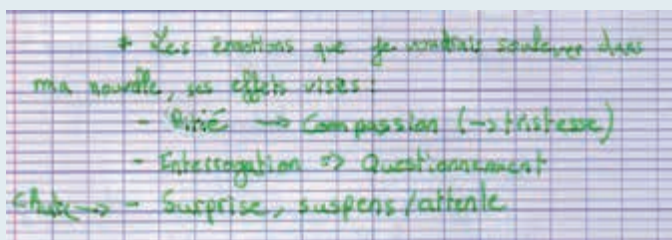 * Les émotions que je voudrais soulever dans
ma nouvelle, ses effets visés :
- Pitié → Compassion (→ tristesse)
- Interrogation => Questionnement
Chute → - Surprise, suspens / attente